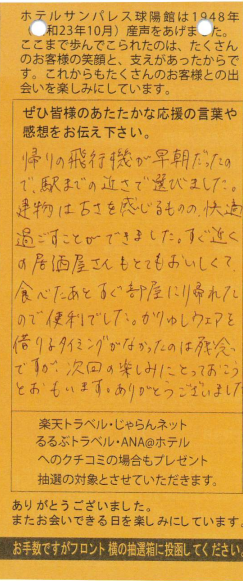 ホテルサンパレス球陽館は1948年
和23年10月）産声をあげました。
ここまで歩んでこられたのは、たくさん
のお客様の笑顔と、支えがあったからで
す。これからもたくさんのお客様との出
会いを楽しみにしています。
ぜひ皆様のあたたかな応援の言葉や
感想をお伝え下さい。
帰りの飛行機が早朝だったの
で、駅までの近さで選びました。
建物は古さを感じるものの、快適
過ごすことができました。すぐ近く
の居酒屋さんもとてもおいしくて、
食べたあとすぐ部屋に帰れた
ので便利でした。かりゆしウェアを
借りるタイミングがなかったのは残念
ですが、次回の楽しみにとっておこう
とおもいます。ありがとうございました
楽天トラベル・じゃらんネット
るるぶトラベル・ANA@ホテル
へのクチコミの場合もプレゼント
抽選の対象とさせていただきます。
ありがとうございました。
またお会いできる日を楽しみにしています。
お手数ですがフロント横の抽選箱に投函してください。